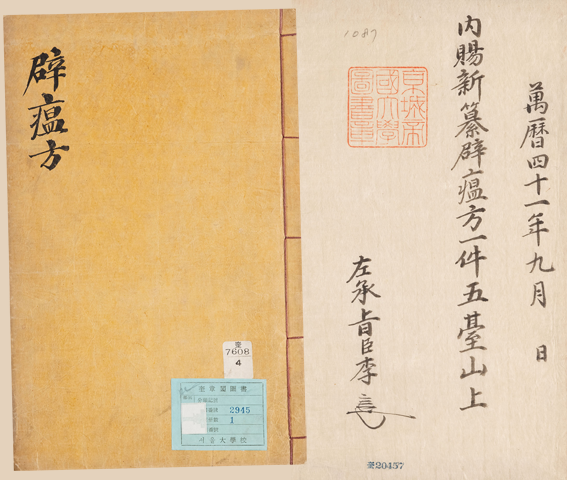 辟瘟方
奎
7608
4
奎章閣圖書
2945
1
서울大學校
1087
萬曆四十一年九月 日
內賜新纂辟瘟方一件五臺山上
左承旨臣李
京城帝
國大學
圖書章
奎20457